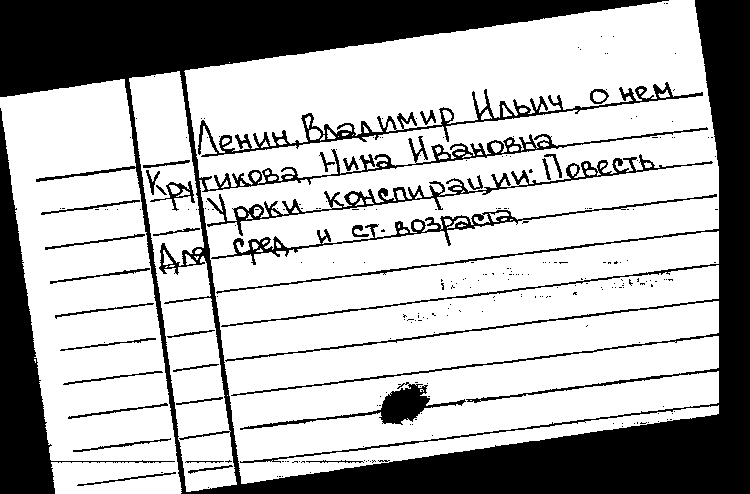 Ленин, Владимир Ильич, о нем
Крутикова, Нина Ивановна
Уроки конспирации: Повесть.
Для сред. и ст. возраста